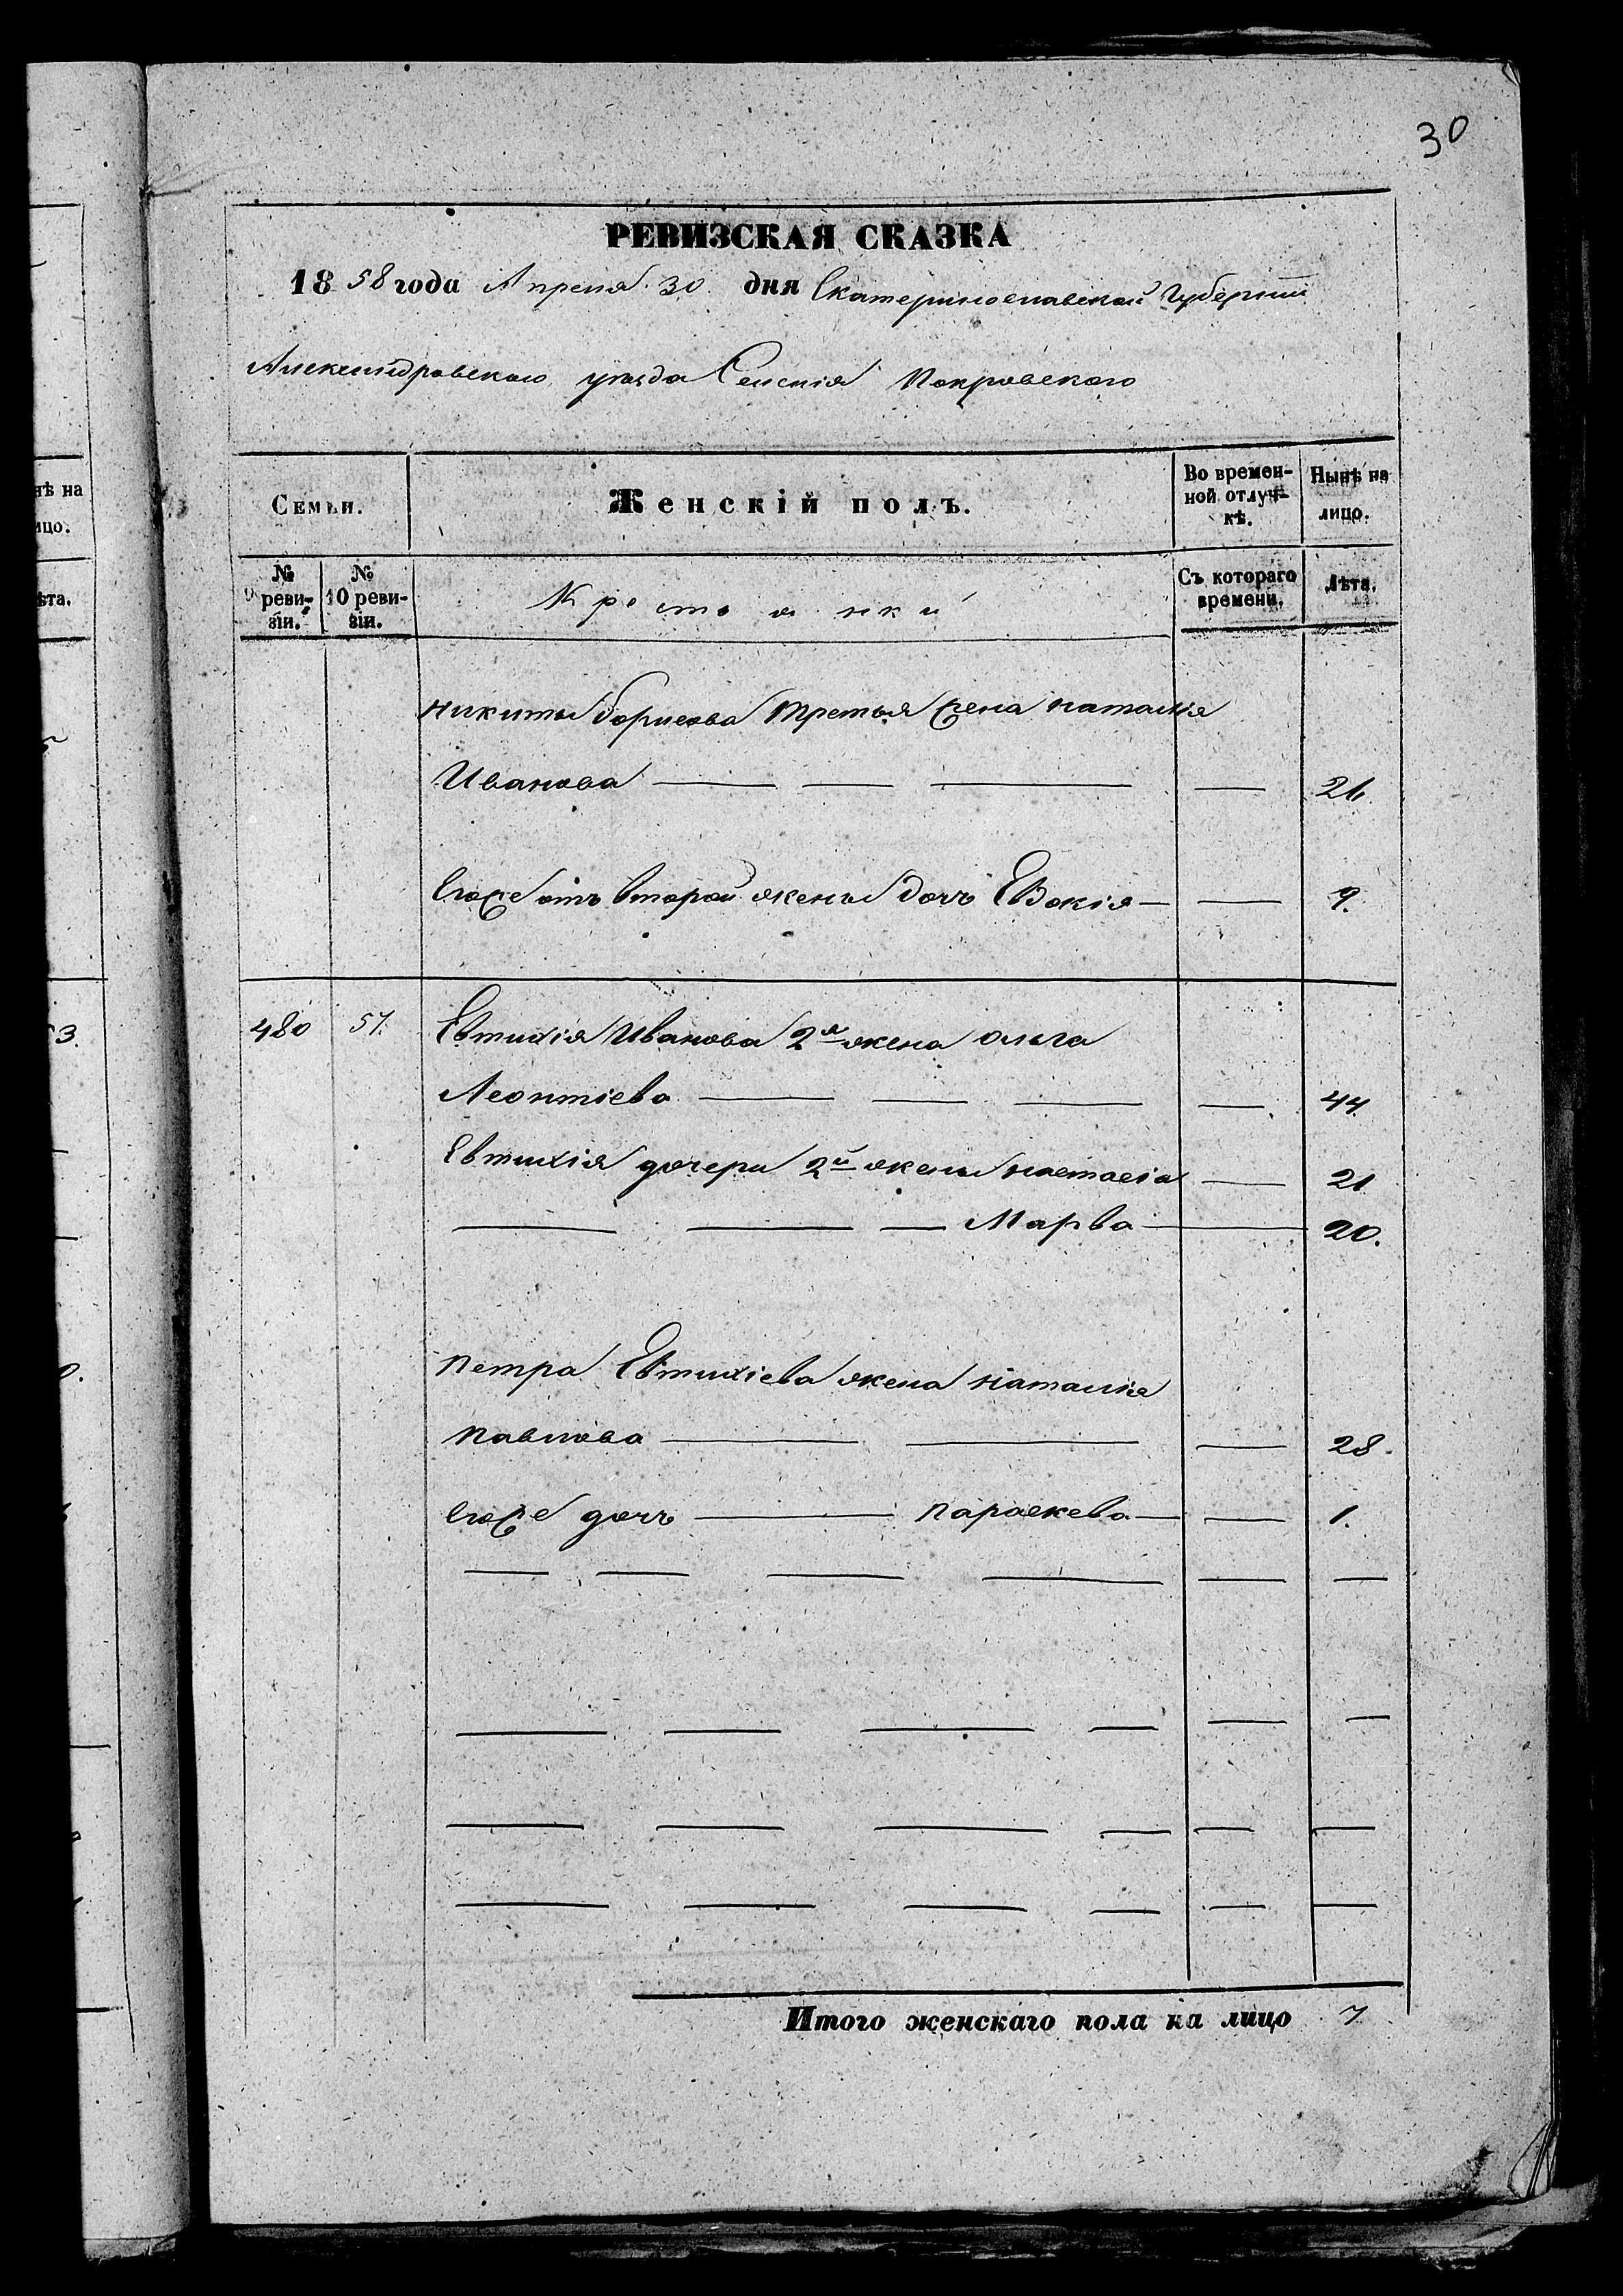 30
РЕВИЗСКАЯ СКАЗКА
1858 года Апреля 30 дня Екатеринославской Губернии
Александровского уезда Селенія Покровского
Семьи.
Женскій полъ.
Во времен-
ной отлуч-
кѣ.
Нынѣ на
лицо.
№
9 реви-
зіи.
№
10 реви-
зіи.
Крестьянки
Съ котораго
времени.
Лѣта.
Никиты Борисова третья жена Наталія
Иванова 21.
Егоже отъ второй жены дочь Евдокія 9.
480 57. Евтихія Иванова 2я жена Ольга
Леонтіева 44
Евтихія дочери 2й жены Настасіа 21
Марва 20.
Петра Евтихіева жена Наталія
Павлова 28.
Егоже дочь Параскева 1.
Итого женскаго пола на лицо 7
нѣ на
ицо.
ѣта.
3.
0.